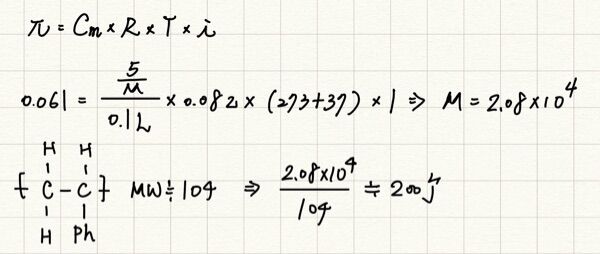 π = Cm × R × T × i
0.061 = (5/M)/0.1L × 0.082 × (273+37) × 1 ⇒ M = 2.08×10⁴
H H
{ C - C } MW≒104 ⇒ 2.08×10⁴/104 ≒ 200개
H Ph